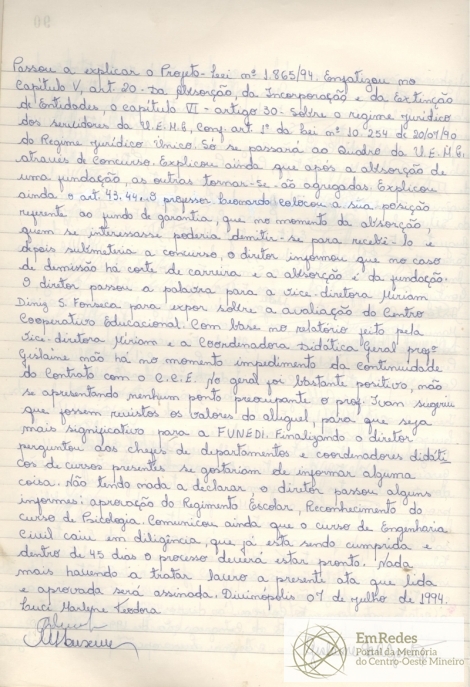 Passou a explicar o Projeto-Lei nº 1.865/94. Enfatizou no
Capítulo V, art 20 - Da Absorção, da Incorporação e da Extinção
de Entidades, o capítulo VI - artigo 30. Sobre o regime jurídico
dos servidores da U.E.M.G, Conf. art. 1º da lei nº 10.254 de 20/07/90
do Regime Jurídico Único. Só se passará ao Quadro da U.E.M.G,
através de Concurso. Explicou ainda que após a absorção de
uma fundação, as outras tornar-se-ão agregadas. Explicou
ainda, o art. 43, 44 e. O professor Leonardo colocou a sua posição
referente ao fundo de garantia, que no momento da absorção,
quem se interessasse poderia demitir-se para recebê-lo e
depois submeteria a concurso, o diretor informou que no caso
de demissão há corte de carreira e a absorção é da fundação.
O diretor passou a palavra para a vice-diretora Miriam
Diniz S. Fonseca para expor sobre a avaliação do Centro
Cooperativo Educacional. Com base no relatório feito pela
vice-diretora Miriam e a Coordenadora Didática Geral profª
Gislaine não há no momento impedimento da continuidade
do Contrato com o C.C.E. No geral foi bastante positivo, não
se apresentando nenhum ponto preocupante o prof. Ivan sugeriu
que fossem revistos os valores do aluguel, para que seja
mais significativo para a FUNEDI. Finalizando o diretor
perguntou aos chefes de departamentos e coordenadores didáti
cos de cursos presentes se gostariam de informar alguma
coisa. Não tendo nada a declarar o diretor passou alguns
informes: aprovação do Regimento Escolar, Reconhecimento do
curso de Psicologia. Comunicou ainda que o curso de Engenharia
Civil caiu em diligência, que já está sendo cumprida e
dentro de 45 dias o processo deverá estar pronto. Nada
mais havendo a tratar lavro a presente ata que lida
e aprovada será assinada. Divinópolis 07 de julho de 1994.
Marlyne Teodora
EmRedes
Portal da Memória
do Centro-Oeste Mineiro